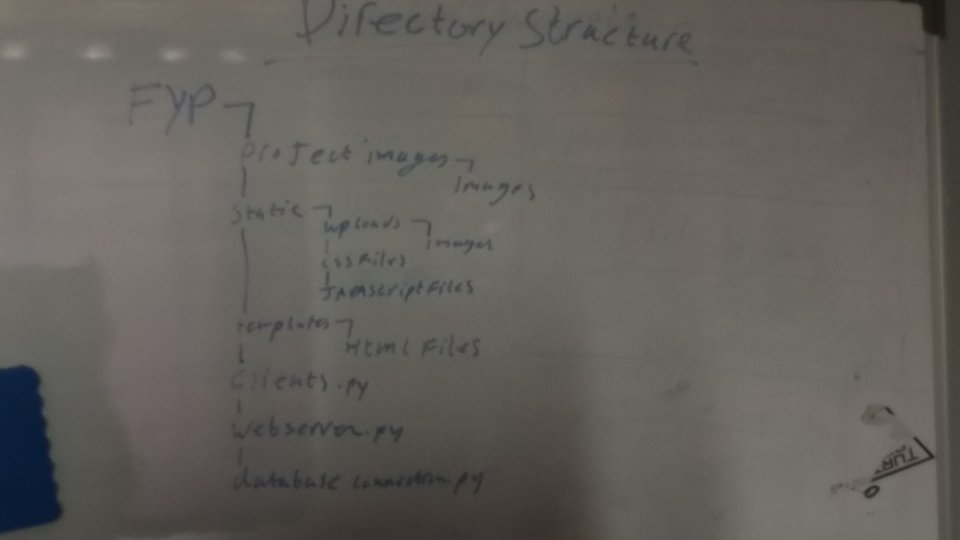 Directory Structure
FYP
Project images
Images
Static
uploads
Images
css Files
Javascript Files
templates
Html Files
Clients.py
Webserver.py
database connection.py